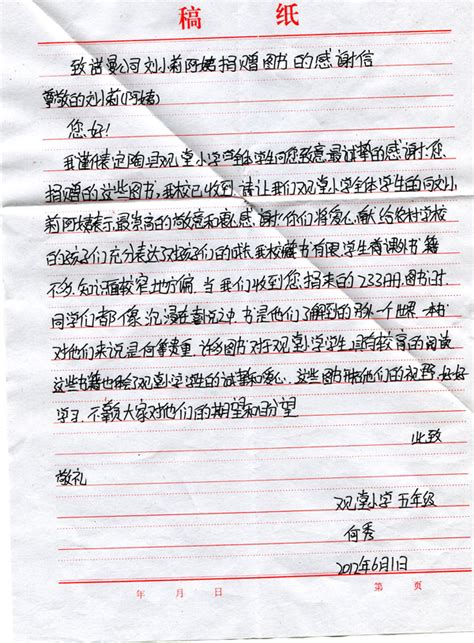 稿 纸
致诺曼公司刘小莉阿姨捐赠图书的感谢信
尊敬的刘小莉(阿姨)
您好!
我谨代表定陶县观堂小学全体学生向您致意最诚挚的感谢!您
捐赠的这些图书,我校已收到,请让我们观堂小学全体学生的向刘小
莉阿姨表示最崇高的敬意和感谢!你们将爱心献给农村学校
的孩子们充分表达了对孩子们的成长,我校藏书有限,学生看课外书籍
不多,知识面较窄地方偏,当我们收到您捐来的233册图书时,
同学们都像沉浸在喜悦中,书是他们了解到的另一个世界,一本书
对他们来说是何等贵重,许多图书对于观堂小学学生具有较高的阅读
这些书籍也给了观堂小学学生的诚挚和爱心,这些图书拓他们的视野,好好
学习,不辜负大家对他们的期望和盼望
此致
敬礼
观堂小学 五年级
何秀
2012年6月1日
年 月 日 第 页